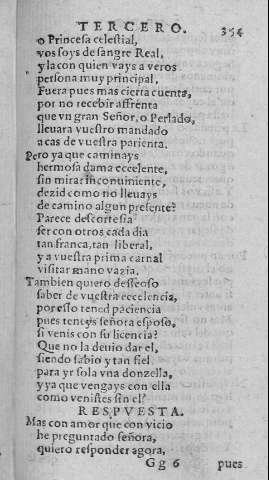 TERCERO. 354
o Princesa celestial,
vos soys de sangre Real,
y la con quien vays a veros
persona muy principal.
Fuera pues mas cierta cuenta,
por no recebir affrenta
que vn gran Señor, o Perlado,
lleuara vuestro mandado
a cas de vuestra parienta.
Pero ya que caminays
hermosa dama eccelente,
sin mirar inconuiniente,
dezid como no lleuays
de camino algun presente?
Parece descortesia
ser con otros cada dia
tan franca, tan liberal,
y a vuestra prima carnal
visitar mano vazia.
Tambien quiero desseoso
saber de vuestra eccelencia,
por esso tened paciencia
pues teneys señora esposo,
si venis con su licencia?
Que no la deuio dar el,
siendo sabio y tan fiel
para yr sola vna donzella,
y ya que vengays con ella
como venistes sin el?
RESPVESTA.
Mas con amor que con vicio
he preguntado señora,
quiero responder agora,
Gg 6 pues